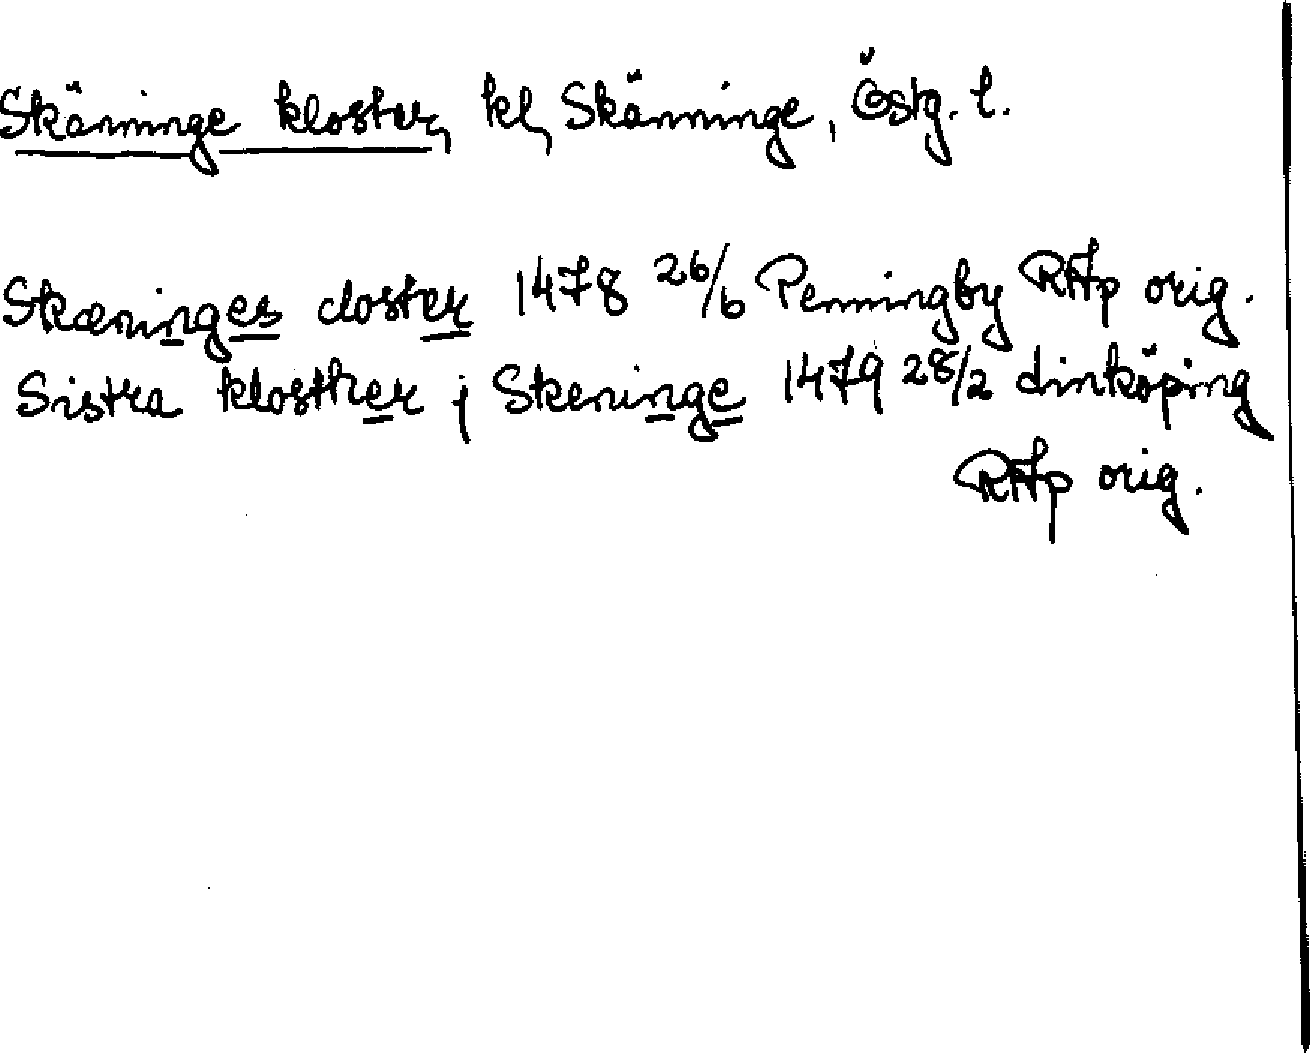 Skänninge kloster, kl, Skänninge, Östg. l.
Skæninges closter 1478 26/6 Penningby RAp orig.
Sistra klosther j Skeninge 1479 28/2 Linköping
RAp orig.